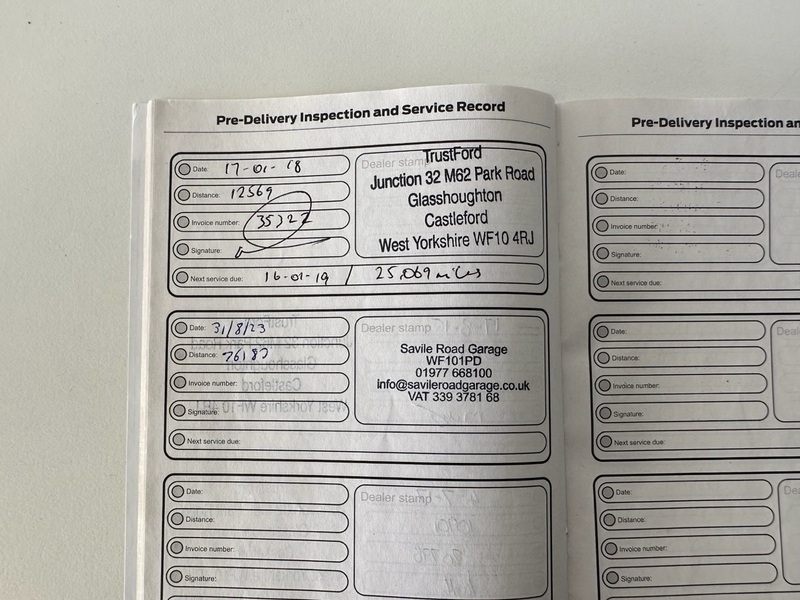 Pre-Delivery Inspection and Service Record
Date: 17-01-18
Distance: 12569
Invoice number:
Signature:
Next service due: 16-01-19 / 25,069 miles
Dealer stamp
TrustFord
Junction 32 M62 Park Road
Glasshoughton
Castleford
West Yorkshire WF10 4RJ
Date: 31/8/23
Distance: 76187
Invoice number:
Signature:
Next service due:
Dealer stamp
Savile Road Garage
WF101PD
01977 668100
info@savileroadgarage.co.uk
VAT 339 3781 68
Date:
Distance:
Invoice number:
Signature:
Dealer stamp
Pre-Delivery Inspection an
Date:
Distance:
Invoice number:
Signature:
Next service due:
Deale
Date:
Distance:
Invoice number:
Signature:
Next service due:
Deale
Date:
Distance:
Invoice number:
Signature:
De